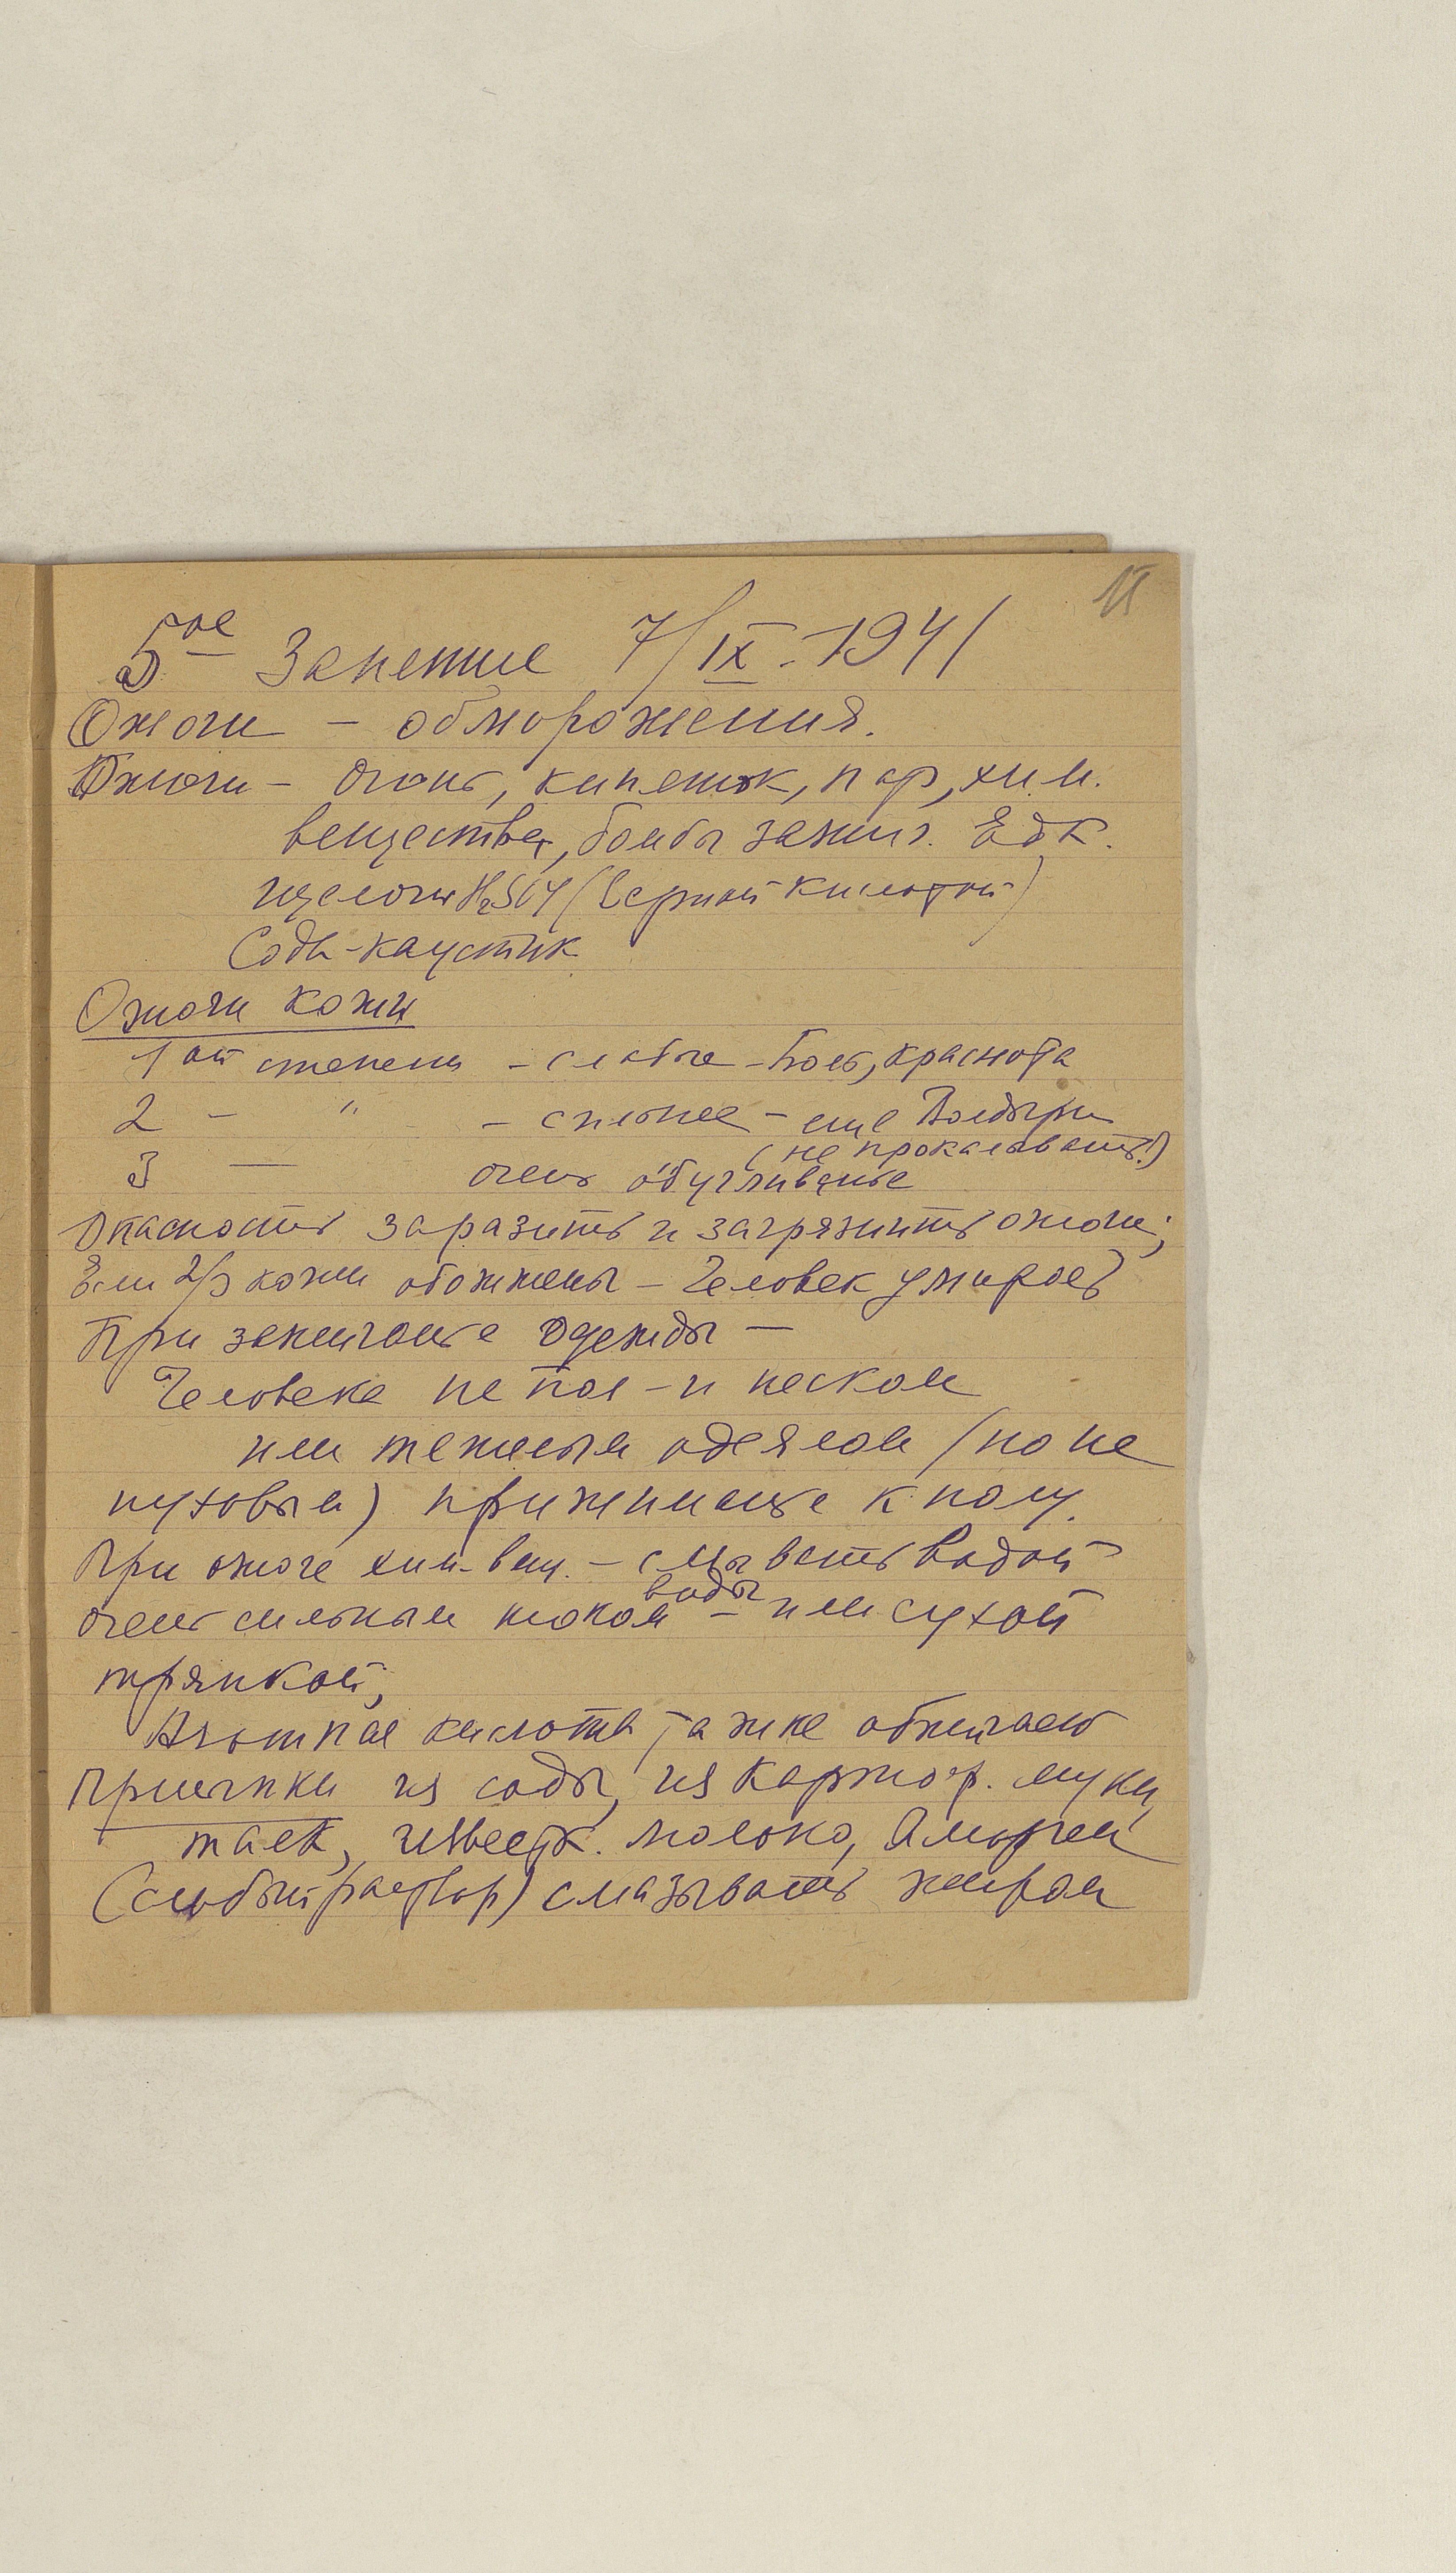 11
5ое Занятие 7/IX-1941
Ожоги – обморожения.
Ожоги – огонь, кипяток, пар, хим.
вещества, бомбы зажиг. Едк.
щелочи H2SO4 (Серной кислотой)
Сода-каустик
Ожоги кожи
1ой степени – слабые – Боль, краснота
2 – " – сильнее – еще Волдыри
(не прокалывать!)
3 — очень обугливанье
Опасность заразить и загрязнить ожоги;
Если 2/3 кожи обожжены – Человек умирает
При зажигание одежды –
Человека на пол – и песком
или тяжелым одеялом (но не
пуховым) прижимание к полу.
При ожоге хим. вещ. – смывать водой
очень сильным током воды – или сухой
тряпкой,
Азотная кислота также обжигает
Примочки из соды, из картоф. муки,
тальк, известк. молоко,
(слабый раствор) смазывать жиром